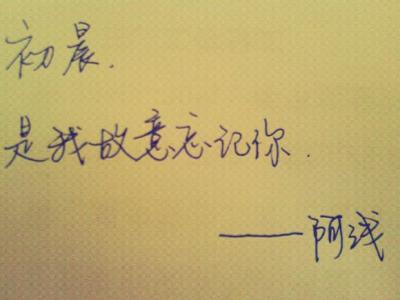 初晨.
是我故意忘记你.
——阿浅